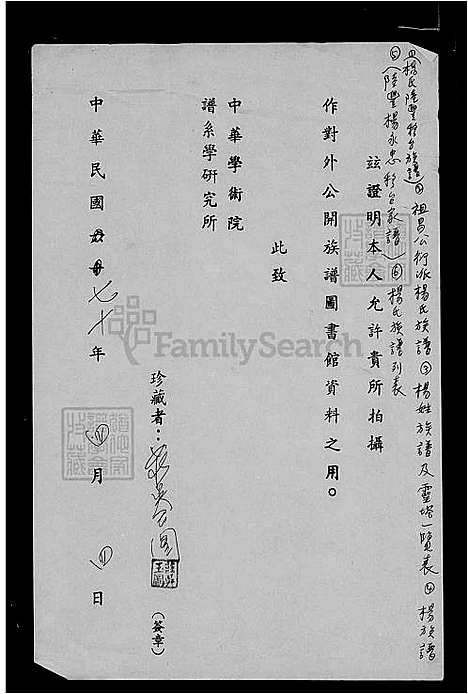 ①楊氏陸豐移台族譜②祖昌公衍派楊氏族譜③楊姓族譜及靈塔一覽表④楊族譜
⑤(陸豐楊永忠移台家譜)⑥楊氏族譜列表
茲證明本人允許貴所拍攝
作對外公開族譜圖書館資料之用。
此致
中華學術院
譜系學研究所
珍藏者：
(簽章)
中華民國七十年 四月 四日
FamilySearch